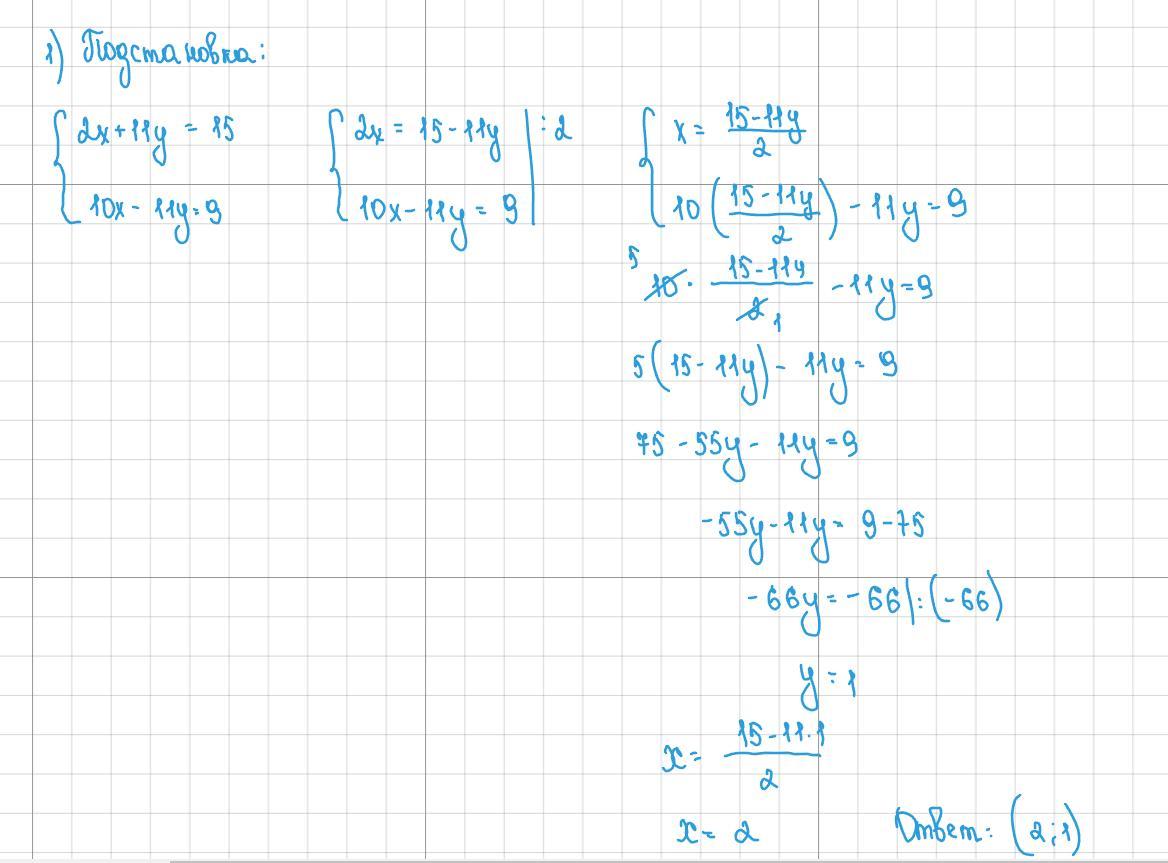 1) Подстановка:
{ 2x+11y = 15
10x - 11y = 9
{ 2x = 15 - 11y | : 2
10x - 11y = 9
{ x = (15-11y)/2
10 ( (15-11y)/2 ) - 11y = 9
5 10 · (15-11y)/2 1 - 11y = 9
5 (15 - 11y) - 11y = 9
75 - 55y - 11y = 9
-55y - 11y = 9 - 75
-66y = -66 | : (-66)
y = 1
x = (15 - 11·1)/2
x = 2
Ответ: (2;1)